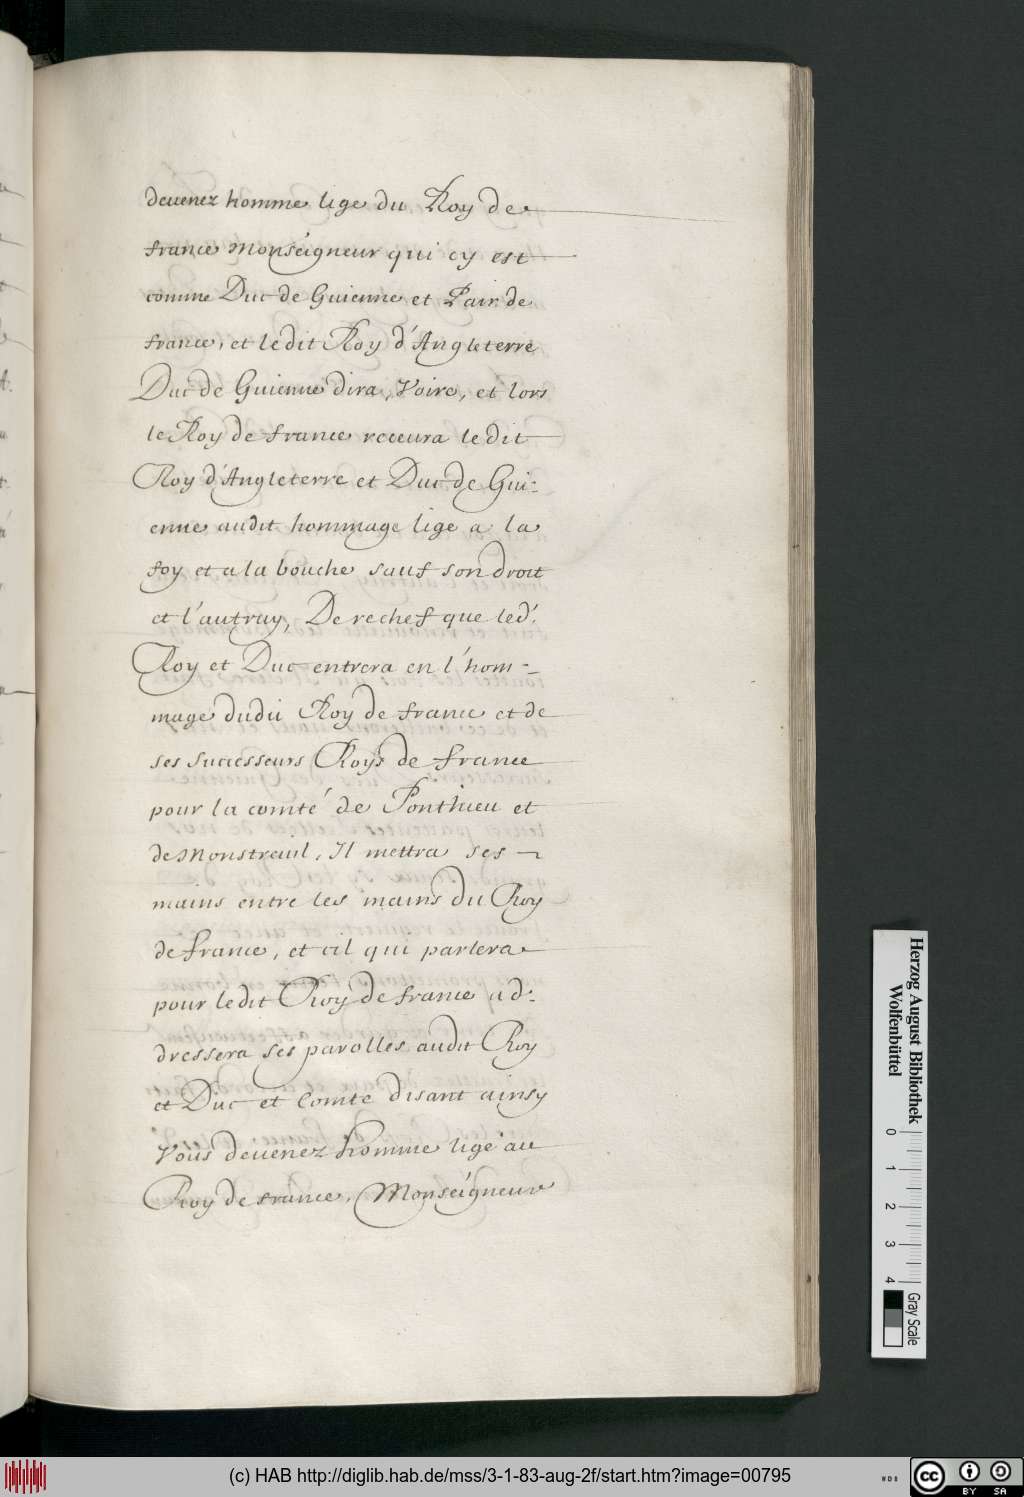 deuenez homme lige du Roy de
france Monseigneur qui cy est
comme Duc de Guienne et Pair de
france, et ledit Roy d'Angleterre
Duc de Guienne dira, Voire, et lors
le Roy de france receura ledit
Roy d'Angleterre et Duc de Gui-
enne audit hommage lige a la
foy et a la bouche sauf son droit
et l'autruy, De rechef que led.
Roy et Duc entrera en l'hom-
mage dudit Roy de france et de
ses successeurs Roys de france
pour la comté de Ponthieu et
de Monstreuil, Il mettra ses
mains entre les mains du Roy
de france, et cil qui parlera
pour ledit Roy de france ad-
dressera ses parolles audit Roy
et Duc et Comte disant ainsy
Vous deuenez homme lige au
Roy de france, Monseigneur
Herzog August Bibliothek
Wolfenbüttel
0 1 2 3 4
Gray Scale
(c) HAB http://diglib.hab.de/mss/3-1-83-aug-2f/start.htm?image=00795
WDB
cc BY SA